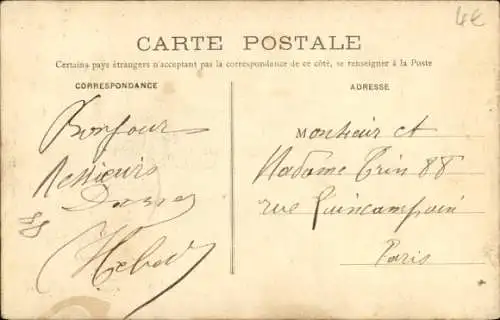 4€
CARTE POSTALE
Certains pays étrangers n'acceptant pas la correspondance de ce côté, se renseigner à la Poste
CORRESPONDANCE
ADRESSE
Bonjour
Messieurs
Dames
Monsieur et
Madame Trin 88
rue Quincampoix
Paris